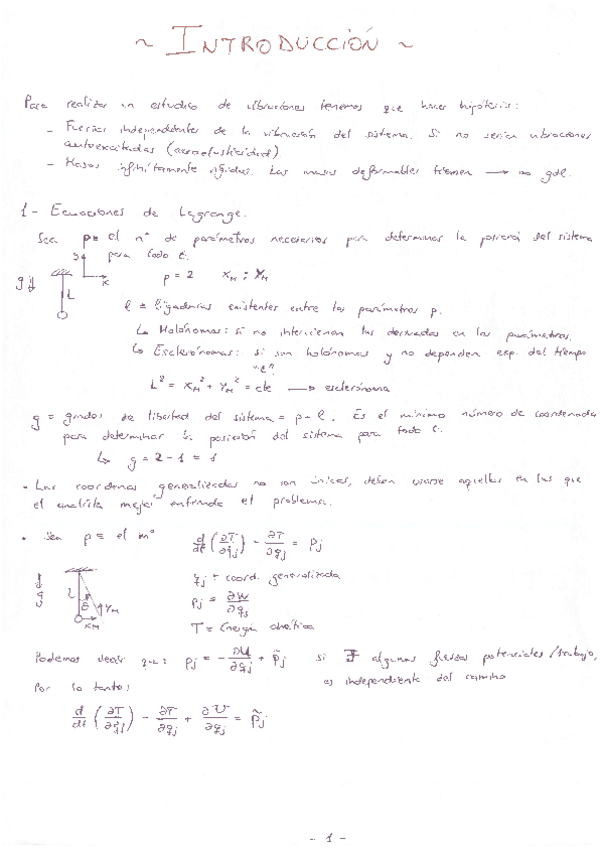 ~ INTRODUCCIÓN ~
Para realizar un estudio de vibraciones tenemos que hacer hipótesis:
- Fuerzas independientes de la vibración del sistema. Si no serían vibraciones
autoexcitadas (aeroelasticidad).
- Masas infinitamente rígidas. Las masas deformables tienen → ∞ gdl.
1- Ecuaciones de Lagrange.
Sea p ≡ el nº de parámetros necesarios para determinar la posición del sistema
para todo t.
y
x
g
L
p = 2 X_M ; Y_M
l ≡ ligaduras existentes entre los parámetros p.
↳ Holónomas: si no intervienen las derivadas en los parámetros.
↳ Esclerónomas: si son holónomas y no dependen exp. del tiempo
L² = X_M² + Y_M² = cte → esclerónoma
g = grados de libertad del sistema = p - l. Es el mínimo número de coordenadas
para determinar la posición del sistema para todo t.
↳ g = 2 - 1 = 1
• Las coordenas generalizadas no son únicas, deben usarse aquellas en las que
el analista mejor entienda el problema.
• Sea p ≡ el mº d/dt (∂T/∂q̇j) - ∂T/∂qj = pj
g
L
θ
Y_M
X_M
qj ≡ coord. generalizada
pj = ∂W/∂qj
T ≡ Energía cinética
Podemos decir que: pj = -∂U/∂qj + p̃j si ∃ algunas fuerzas potenciales/trabajo,
es independiente del camino
Por lo tanto:
d/dt (∂T/∂q̇j) - ∂T/∂qj + ∂U/∂qj = p̃j
- 1 -